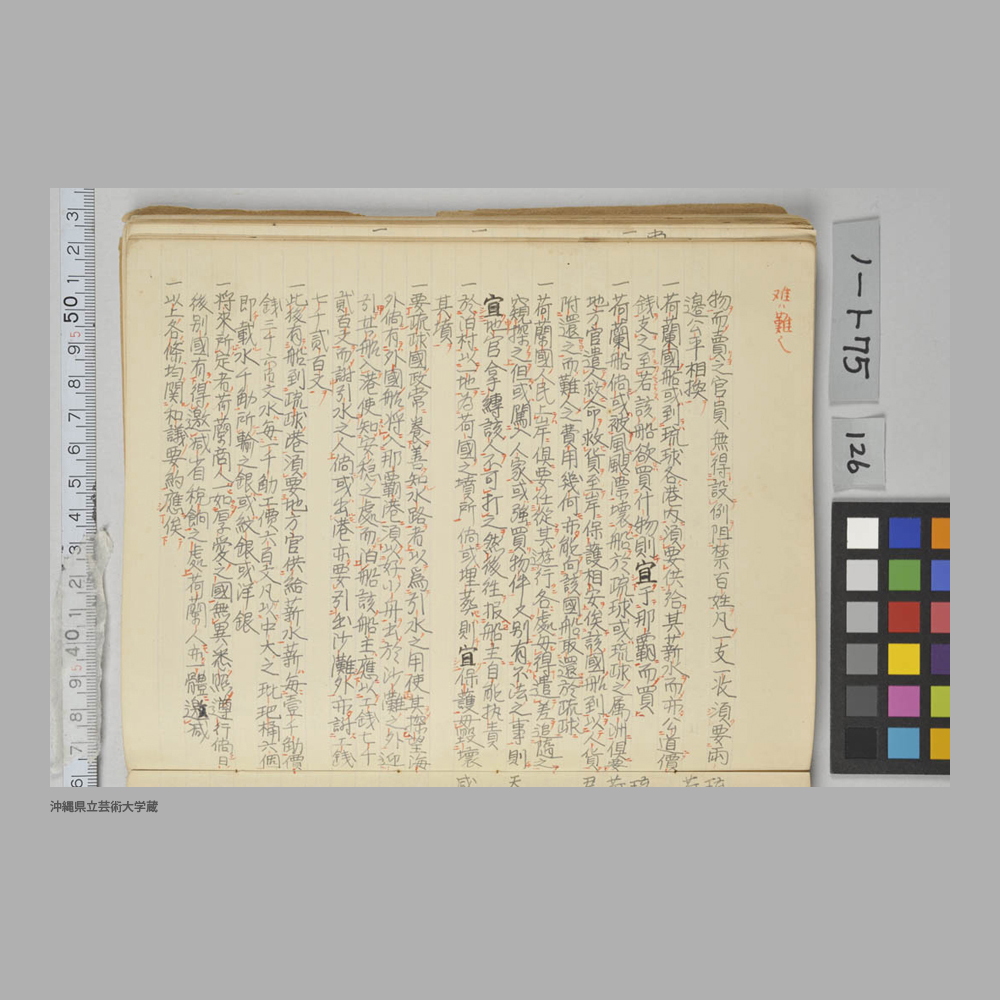 難ハ難ク
物而賣之官員無得設例阻禁百姓凡一支一表須要兩
邊公平相換
一荷蘭國船或到琉球各港內須要供給其薪水而亦公道價
錢支之至若該船欲買什物則宜于那霸而買
一荷蘭船倘或被風颶漂壞船於琉球或琉球之属洲俱要
地方官遣救命救貨至岸保護相安俟該國船到以人貨
附還之而難人之費用幾何亦能向該國船取還於琉球
一荷蘭國人民上岸俱要任從其遊行各處毋得遣差追隨之
窺探之但或闖人人家或強買物件又別有不法之事則
宜地官拿縛該人不可打之然後往报船主自能执責
一於泊村以一地為荷國之墳所倘或埋葬則宜保護毋毀壞
其墳
一要琉球國政常養善知水路者以爲引水之用使其探望海
外倘有外國船將入那霸港須以好小舟出於沙灘之外迎
引廿船入港使知安穏之處而泊船該船主應以工錢七千
貳百文而謝引水之人倘或出港亦要引出沙灘外亦謝工錢
七千貳百文
一此後有船到琉球港須要地方官供給薪水薪每壹千觔價
錢三千六百文水每一千觔工價六百文凡以中大之琵琶桶六個
即載水千觔所輸之銀或紋銀或洋銀
一將來所定者荷蘭商人如厚愛之國無異悉照遵行倘日
後別國有得邀减者税餉之處荷蘭人亦一體邀减
一以上各條均関和議要約應俟
ノート75
126
50
40
沖縄県立芸術大学蔵